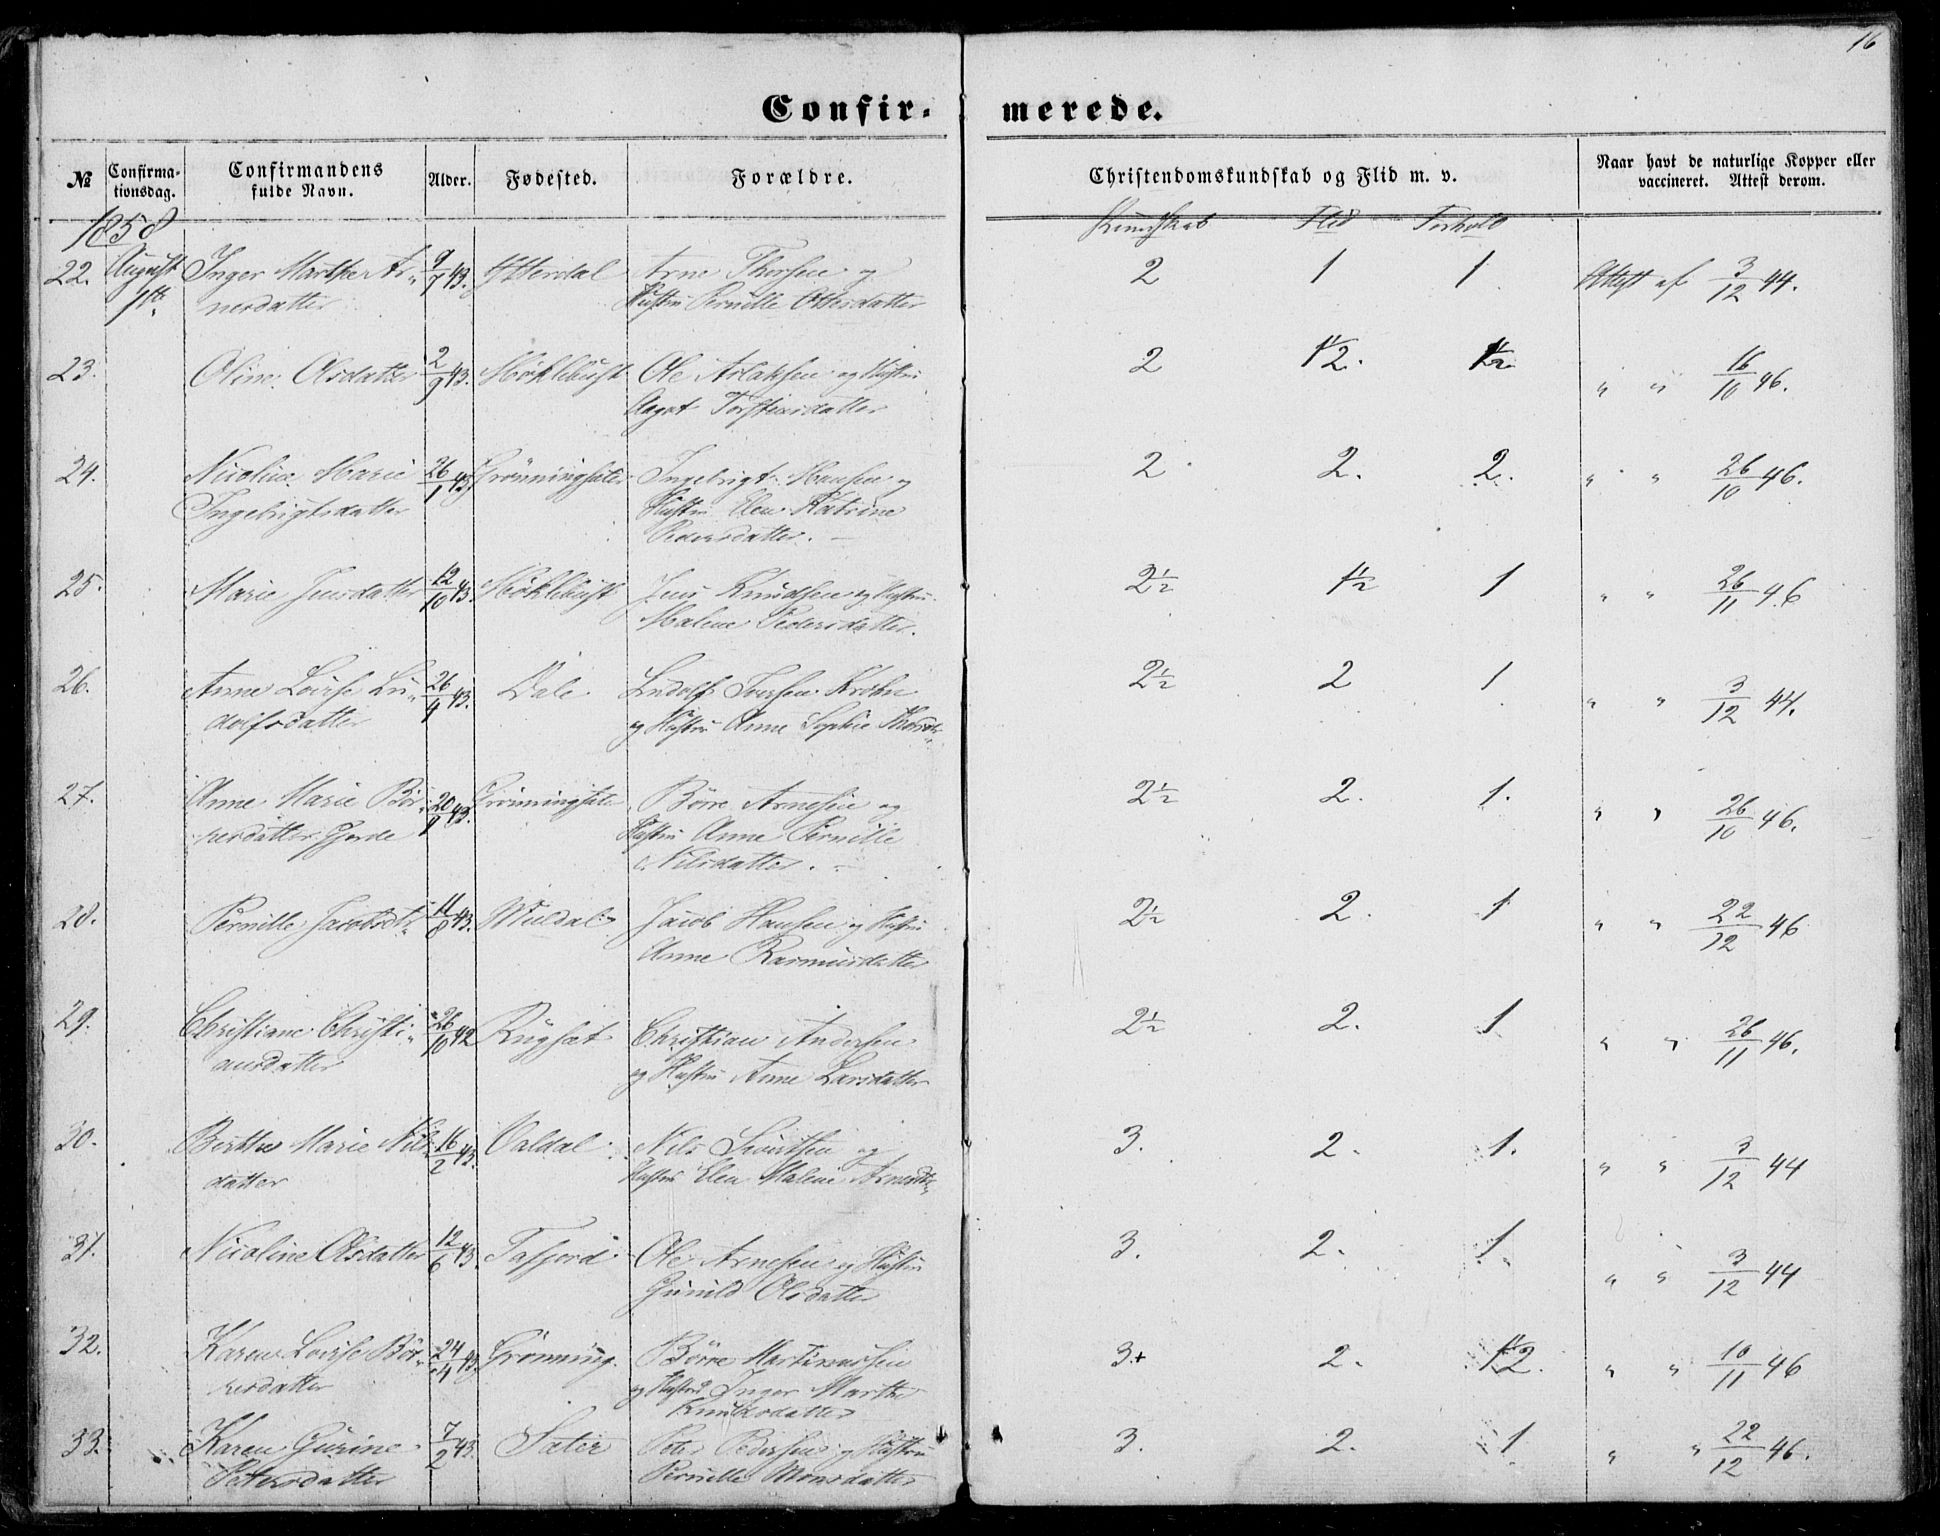 16
Confir- merede.
№ Confirma-tionsdag. Confirmandens fulde Navn. Alder. Fødested. Forældre. Christendomskundskab og Flid m. v. Naar havt de naturlige Kopper eller vaccineret. Attest derom.
1858 Kundskab Flid Forhold
22. August Inger Marthe Ar- 9/1 43. Ytterdal Arne Thorsen og 2 1 1 Attest af 3/12 44.
1ste nesdatter Hustru Pernille Ottersdatter
23. Oline Olsdatter 2/9 43. Møklebust Ole Aslaksen og Hustru 2 1½ 2. 1½ " " 16/10 46.
Aagot Torsteinsdatter
24. Nicoline Marie 26/1 43. Grønningsæter Ingebrigt Hansen og 2 2. 2. " " 26/10 46.
Ingebrigtsdatter Hustru Elen Katrine
Pedersdatter.
25. Marie Jensdatter 12/10 43. Møklebust Jens Knudsen og Hustru 2½ 1½ 1 " " 26/11 46
Malene Pedersdatter.
26. Anne Lovise Lu- 26/4 43. Dale Ludolf Krohn 2½ 2 1 " " 3/12 44.
dolfsdatter og Hustru Anne Sophie
27. Anne Marie Bør- 20/9 43. Grønningsæter Børre Arnesen og 2½ 2. 1. " " 26/10 46.
resdatter Gjerde Hustru Anne Pernille
Nilsdatter.
28. Pernille Jacobsdtr 11/8 43. Muldal Jacob Hansen og Hustru 2½ 2. 1 " " 22/12 46
Anne Rasmusdatter
29. Christiane Christi- 26/10 42 Rugset Christian Andersen 2½ 2. 1 " " 26/11 46.
ansdatter og Hustru Anne Larsdatter
30. Berthe Marie Nils- 16/2 43. Valdal Nils Sivertsen og 3. 2. 1. " " 3/12 44
datter Hustru Elen Malene Arnesdtr
31. Nicoline Olsdatter 12/6 43. Tafjord Ole Arnesen og Hustru 3. 2. 1. " " 3/12 44
Gunild Olsdatter
32. Karen Lovise Bør- 24/4 43. Grønning Børre Martinussen 3+ 2. 1½ 2. " " 10/11 46
resdatter og Hustru Inger Marthe
Knudsdatter
33. Karen Gurine 7/2 43. Sæter Peter Pedersen og Hustru 3. 2. 1 " " 22/12 46.
Petersdatter Pernille Monsdatter